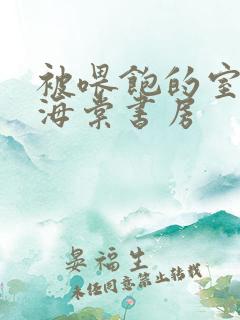 被喂飽的室
海棠書房
晏福生
未经同意禁止转载